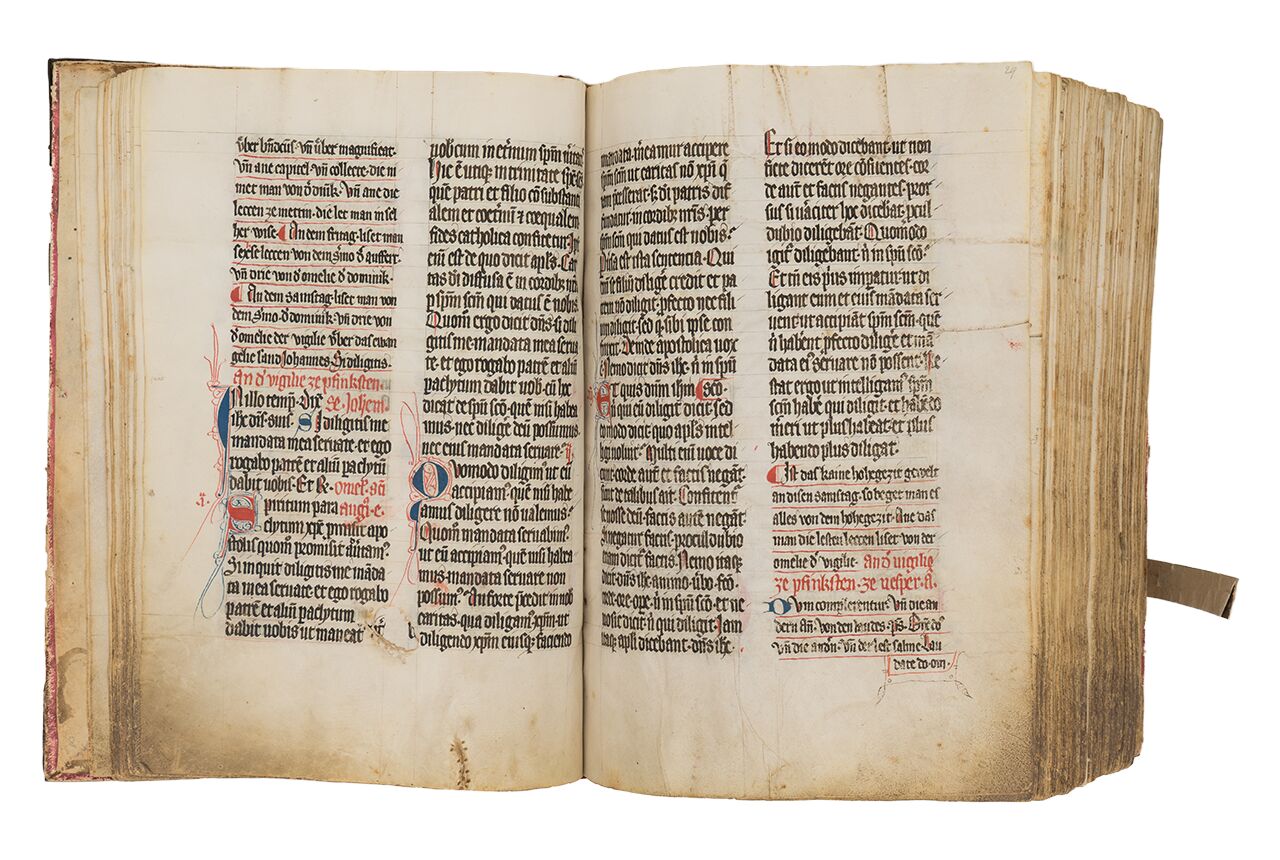 vͤber bn̄dictus· vn̄ vͤber magnificat·
Vn̄ ane capitel· vn̄ collecte· die ni
met man von dominik· Vn̄ ane die
leccen ze mettin· die let man in sel
her wise· An dem fritag· liset man
sehse leccen von dem ḡmo
vn̄ drie von d̓ omelie d̓ dominik·
An dem samstag· liset man von
dem ḡmo d̓ dominik· vn̄ drie von
d̓ omelie der vigilie vͤber das ewan
gelie sand Johannes· Si diligitis·
An d̓ vigilie ze pfinksten
In illo temp̄· Dix̄ Johem̄
ihc dis̄· suis· Si diligitis me
mandata mea seruate· et ego
rogabo patrē et aliū paclytū
dabit uobis· Et R̄· Omel· sc̄i
Spiritum para augꝰ· e·
clytum xp̄c promisit apo
stolis quom̄ promisit
Si inquit diligitis me māda
ta mea seruate· et ego rogabo
patrē et aliū paclytum
dabit uobis ut maneat
uobcum in et̓num spm̄
Hic ē utiqȝ in trinitate sp̄c sc̄s
que patri et filio cō substanti
alem et coet̓nū ⁊ coequalem
fides catholica confitetur· Ip̄e
enī est de quo dicit apl̄s· Cari
tas d̄i diffusa ē in cordibȝ nr̄is
p spm̄ scm̄ qui datus ē nobis·
Quom̄ ergo dicit dn̄s· si dili
gitis me mandata mea serua
te· et ego rogabo patrē et aliū
paclytum dabit uob· cū hc̄
dicat de spū scō· quē nisi habea
mus· nec dilige̓ deū possumus
nec eius mandata seruare·
Quomodo diligimꝰ ut eū
accipiamꝰ quē nisi habe
amus diligere nō ualemus·
Quom̄ mandata seruabimꝰ
ut eū accipiamꝰ quē nisi habea
mus· mandata seruare non
possum̄· An forte p̄cedit in nob
caritas· qua diligamꝰ xp̄m· ut
diligendo xp̄m eiusqȝ faciendo
mandata· meamur accipere
spm̄ scm̄ ut caritas nō xp̄i q̄
iam p̄cesserat· s· d̄i patris dif
fundatur in cordibȝ nr̄is per
spm̄ scm̄ qui datus est nobis·
Puersa est ista sentencia· Qui
enī se filiū diligē credit et pa
trem nō diligit· p̄fecto nec fili
um diligit· sed q̄ sibi ipse con
finxit· Deinde apostolica uox
Nemo dicit dn̄s ihc̄ n̄ in spū
Et quis dn̄m ihm̄ sc̄o·
n̄ qui eū diligit dicit· sed
modo dicit· quo apl̄s intel
ligi uoluit· Multi enī uoce di
cunt· corde autē et factis negāt·
sicut de talibus ait· Confitent̓
se nosse deū· factis autē negāt·
Si negatur factis· procul dubio
etiam dicit̓ factis· Nemo itaqȝ
dicit· dn̄s ihc· animo· ūbo· fcō·
corde· ore· ope· n̄ in spū scō· et ne
mo sic dicit· n̄ qui diligit· Jam
itaqȝ apl̄i dicebant· dn̄s ihc·
Et si eo modo dicebant· ut non
ficte dicerēt· ore cōfitentes· cor
de autē et factis negantes· pror
sus si ūaciter hoc dicebāt· pcul
dubio diligebāt· Quomodo
igit̓ diligebant· n̄ in spū scō·
Et tn̄ eis prius impatur· ut di
ligant eum et eiꝰ mādata ser
uent· ut accipiāt spm̄ scm̄· quē
n̄ habent p̄fecto diligē et mā
data eiꝰ seruare nō possent· Re
stat ergo ut intelligamꝰ spm̄
scm̄ habē qui diligit· et habēdo
meri ut plus habeat· et plus
habendo plus diligat·
Ist das kaine hohgezit gevelt
an disen samstag· so beget man es
alles von dem hohegezit· Ane das
man die lesten leccen liset von der
omelie d̓ vigilie· An d̓ vigilie
ze pfinksten· ze vesper· a·
Dum complerentur· Vn̄ die an
dern an̄· von den laudes· ps·
vn̄ die andn̄· Vn̄ der lest salme· Lau
date do· om·
29